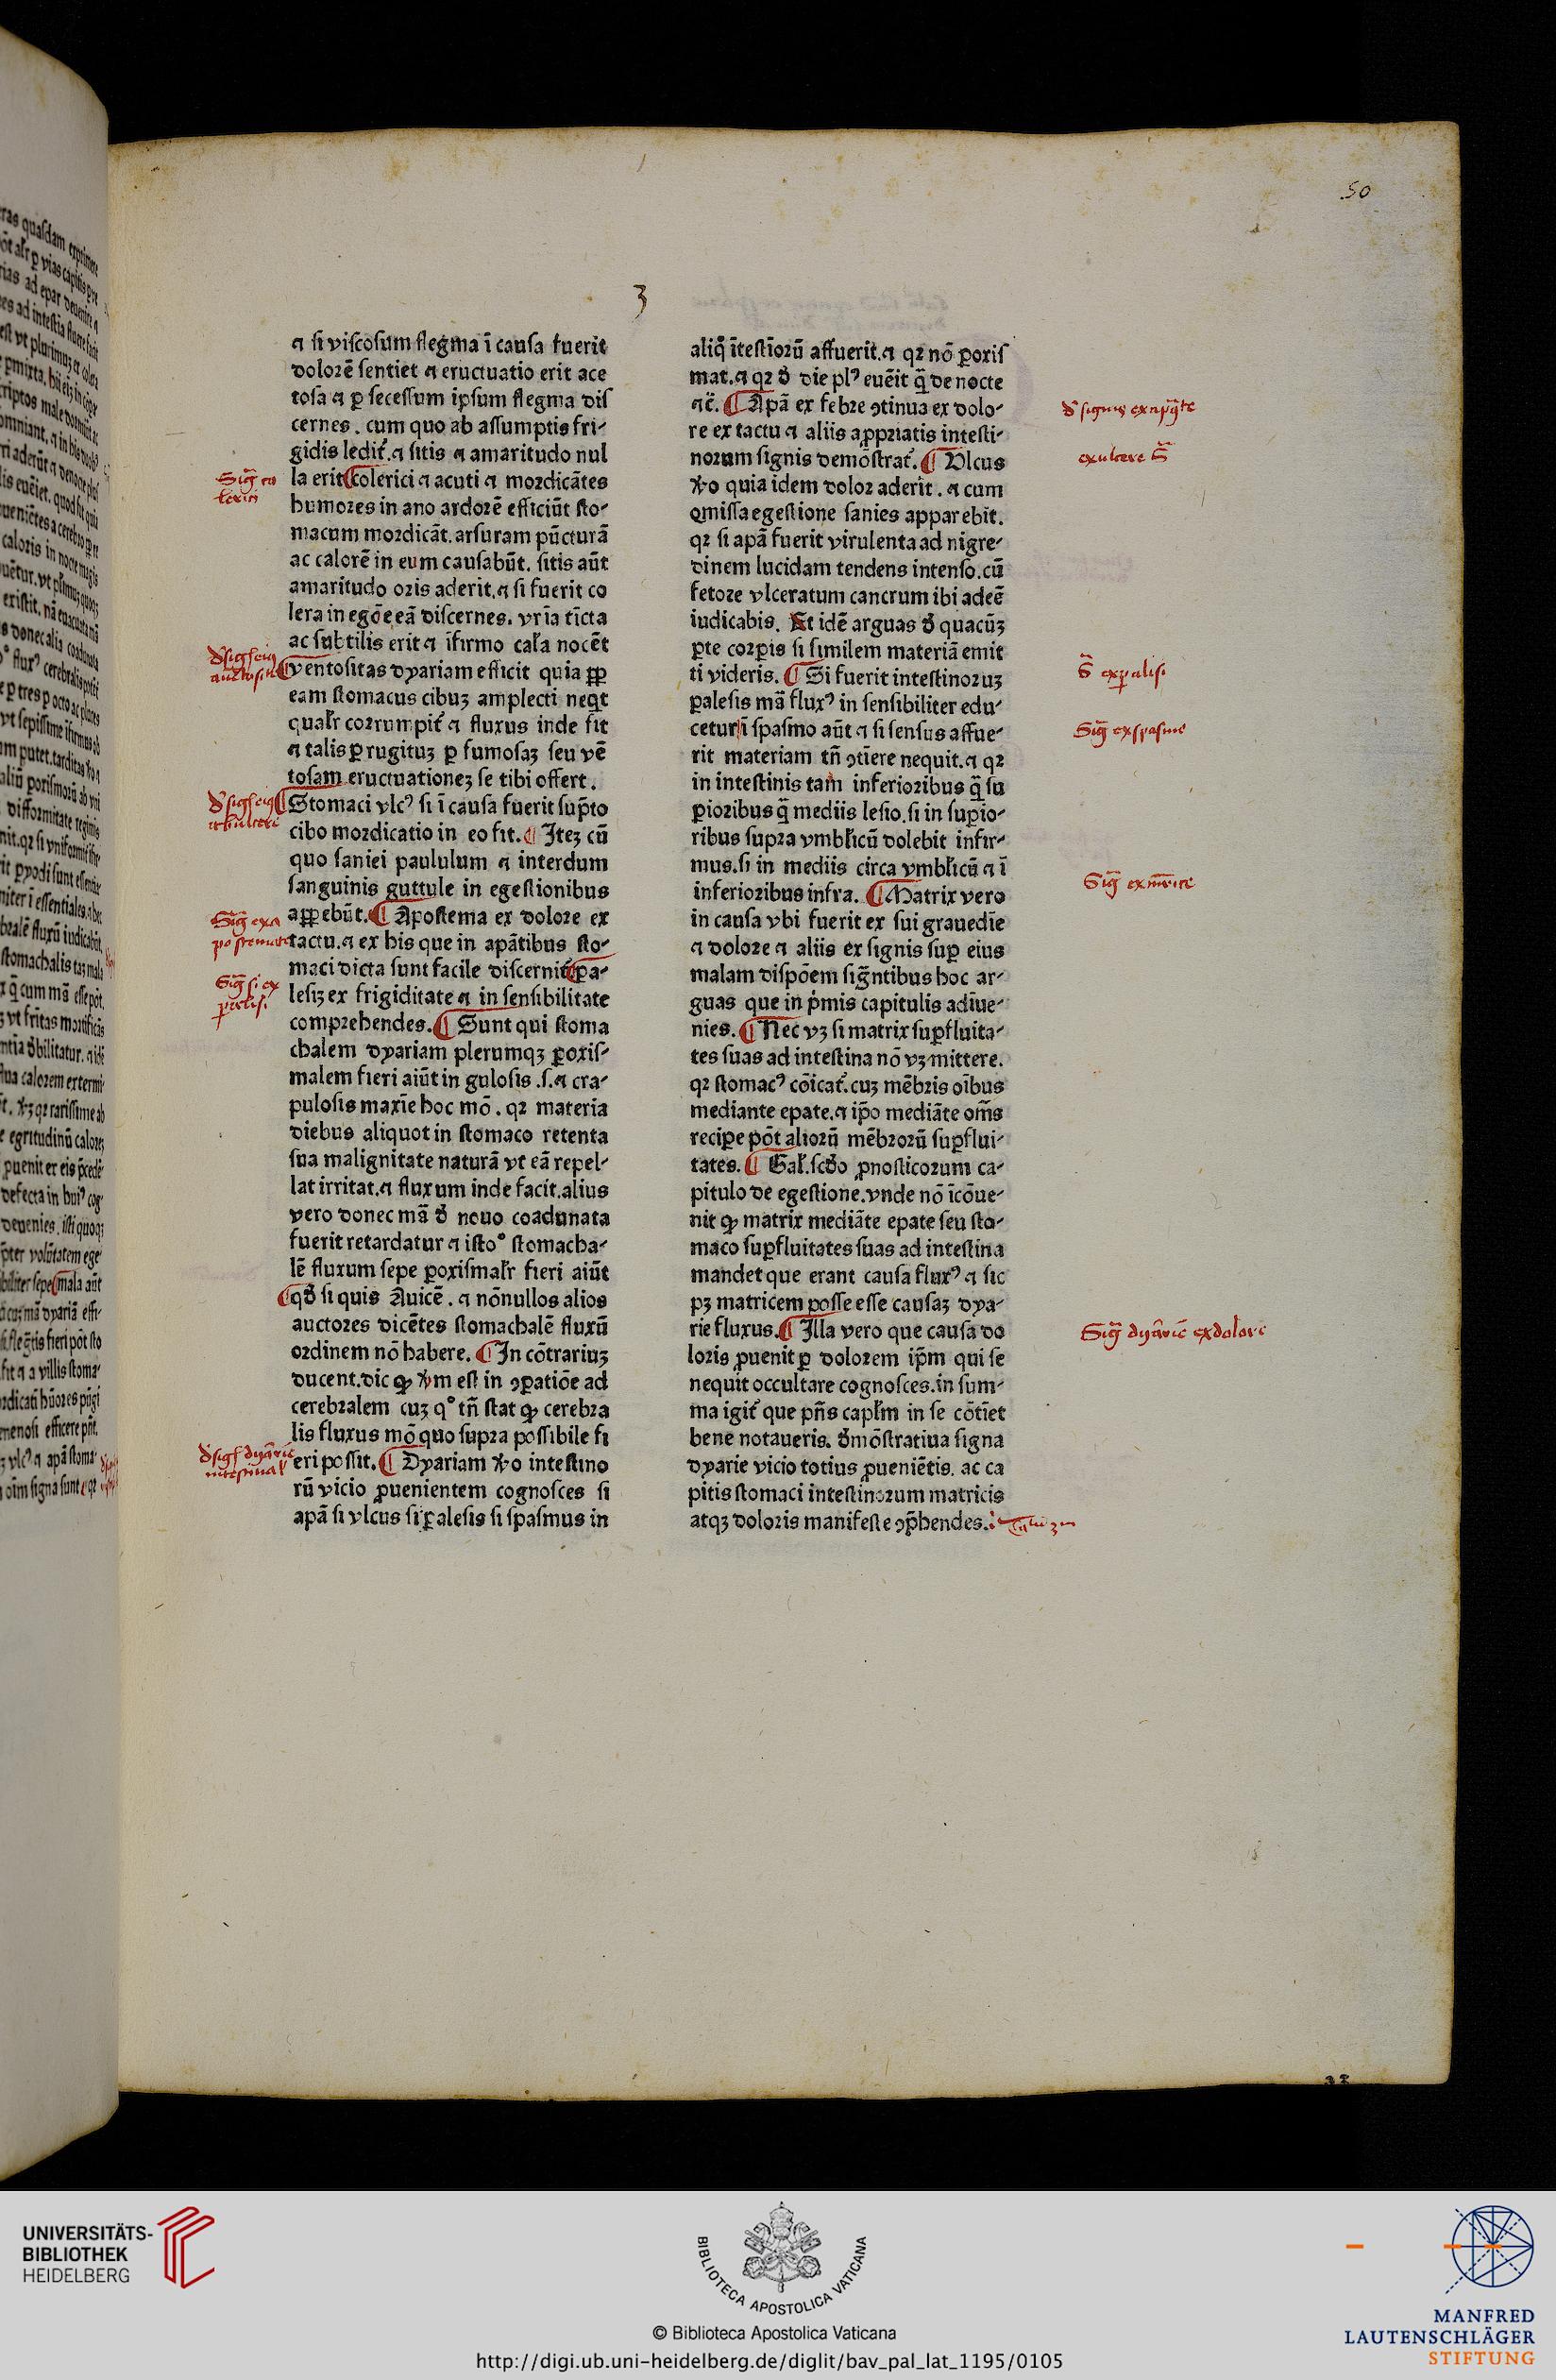 50
3
⁊ ſi viſcoſum flegma ī cauſa fuerit
dolorē ſentiet ⁊ eructuatio erit ace
toſa ⁊ ꝑ ſeceſſum ipſum flegma diſ
cernes. cum quo ab aſſumptis fri-
gidis ledit᷑. ⁊ ſitis ⁊ amaritudo nul
la erit ¶ colerici ⁊ acuti ⁊ mordicātes
humores in ano ardorē efficiūt ſto-
macum mordicāt. arſuram pūcturā
ac calorē in eum cauſabūt. ſitis aūt
amaritudo oris aderit. ⁊ ſi fuerit co
lera in egōe eā diſcernes. vrīa tīcta
ac ſubtilis erit ⁊ īfirmo cał̓a nocēt
¶ ventoſitas dyariam efficit quia ꝓꝑ
eam ſtomacus cibuꝫ amplecti neq̇t
qual̓r corrumpit᷑ ⁊ fluxus inde fit
⁊ talis ꝑ rugituꝫ ꝑ fumoſaꝫ ſeu vē
toſam eructuationeꝫ ſe tibi offert.
¶ Stomaci vlcꝰ ſi ī cauſa fuerit ſūpto
cibo mordicatio in eo fit. ¶ Iteꝫ cū
quo ſaniei paululum ⁊ interdum
ſanguinis guttule in egeſtionibus
apꝑebūt. ¶ Apoſtema ex dolore ex
tactu. ⁊ ex his que in apātibus ſto-
maci dicta ſunt facile diſcernit᷑ ¶ pa-
leſiꝫ ex frigiditate ⁊ in ſenſibilitate
comprehendes. ¶ Sunt qui ſtoma
chalem dyariam plerumqꝫ ꝑoxiſ-
malem fieri aiūt in guloſis .ſ. ⁊ cra-
puloſis maxīe hoc mō. qꝛ materia
diebus aliquot in ſtomaco retenta
ſua malignitate naturā vt eā repel-
lat irritat. ⁊ fluxum inde facit. alius
vero donec mā đ nouo coadunata
fuerit retardatur ⁊ iſto° ſtomacha-
lē fluxum ſepe ꝑoxiſmal̓r fieri aiūt
¶ qđ ſi quis Auicē. ⁊ nōnullos alios
auctores dicētes ſtomachalē fluxū
ordinem nō habere. ¶ In cōtrariuꝫ
ducent. dic ꝙ v̓m eſt in ꝯꝑatiōe ad
cerebralem cuꝫ q° tn̄ ſtat ꝙ cerebra
lis fluxus mō quo ſupra poſſibile fi
eri poſſit. ¶ Dyariam v̓o inteſtino
rū vicio ꝓuenientem cognoſces ſi
apā ſi vlcus ſi ꝑaleſis ſi ſpaſmus in
aliq̊ īteſtīorū affuerit. ⁊ qꝛ nō ꝑoxiſ
mat. ⁊ qꝛ đ die plꝰ euēit q̄ȝ de nocte
⁊c̄. ¶ Apā ex febre ꝯtinua ex dolo-
re ex tactu ⁊ aliis apꝓriatis inteſti-
norum ſignis demōſtrat᷑. ¶ Vlcus
v̓o quia idem dolor aderit. ⁊ cum
qmiſſa egeſtione ſanies apparebit.
qꝛ ſi apā fuerit virulenta ad nigre-
dinem lucidam tendens intenſo. cū
fetore vlceratum cancrum ibi adeē
iudicabis. Et idē arguas đ quacūꝫ
ꝑte corꝑis ſi ſimilem materiā emit
ti videris. ¶ Si fuerit inteſtinoruꝫ
ꝑaleſis mā fluxꝰ in ſenſibiliter edu-
cetur ī ſpaſmo aūt ⁊ ſi ſenſus affue-
rit materiam tn̄ ꝯtīere nequit. ⁊ qꝛ
in inteſtinis tam inferioribus q̄ȝ ſu
ꝑioribus q̄ȝ mediis leſio. ſi in ſuꝑio-
ribus ſupra vmbl̓icū dolebit infir-
mus. ſi in mediis circa vmbl̓icū ⁊ ī
inferioribus infra. ¶ Matrix vero
in cauſa vbi fuerit ex ſui grauedīe
⁊ dolore ⁊ aliis ex ſignis ſuꝑ eius
malam diſpōem ſig̃ntibus hoc ar-
guas que in pͥmis capitulis adīue-
nies. ¶ Nec vꝫ ſi matrix ſuꝑfluita-
tes ſuas ad inteſtina nō vꝫ mittere.
qꝛ ſtomacꝰ cōicat᷑. cuꝫ mēbris oībus
mediante epate. ⁊ ip̄o mediāte om̄s
reciꝑe pōt aliorū mēbrorū ſuꝑflui-
tates. ¶ Gal̓. ſcđo ꝓnoſticorum ca-
pitulo de egeſtione. vnde nō īcōue-
nit ꝙ matrix mediāte epate ſeu ſto-
maco ſuꝑfluitates ſuas ad inteſtina
mandet que erant cauſa fluxꝰ ⁊ ſic
pꝫ matricem poſſe eſſe cauſaꝫ dya-
rie fluxus. ¶ Illa vero que cauſa do
loris ꝓuenit ꝑ dolorem ip̄m qui ſe
nequit occultare cognoſces. in ſum-
ma igit᷑ que pn̄s capl̓m in ſe cōtīet
bene notaueris. đmōſtratiua ſigna
dyarie vicio totius ꝓueniētis. ac ca
pitis ſtomaci inteſtinorum matricis
atqꝫ doloris manifeſte ꝯp̄hendes.
Sig̃ co
lerici
Sig̃ ex a
poſtemate
Sig̃ ſi ex
ꝑaleſi
exulcere S̃
S̃ ex ꝑaliſi
Sig̃ ex ſpaſmo
Sig̃ ex m̄rice
Sig̃ dyarie ex dolore
UNIVERSITÄTS-
BIBLIOTHEK
HEIDELBERG
BIBLIOTECA APOSTOLICA VATICANA
© Biblioteca Apostolica Vaticana
http://digi.ub.uni-heidelberg.de/diglit/bav_pal_lat_1195/0105
MANFRED
LAUTENSCHLÄGER
STIFTUNG